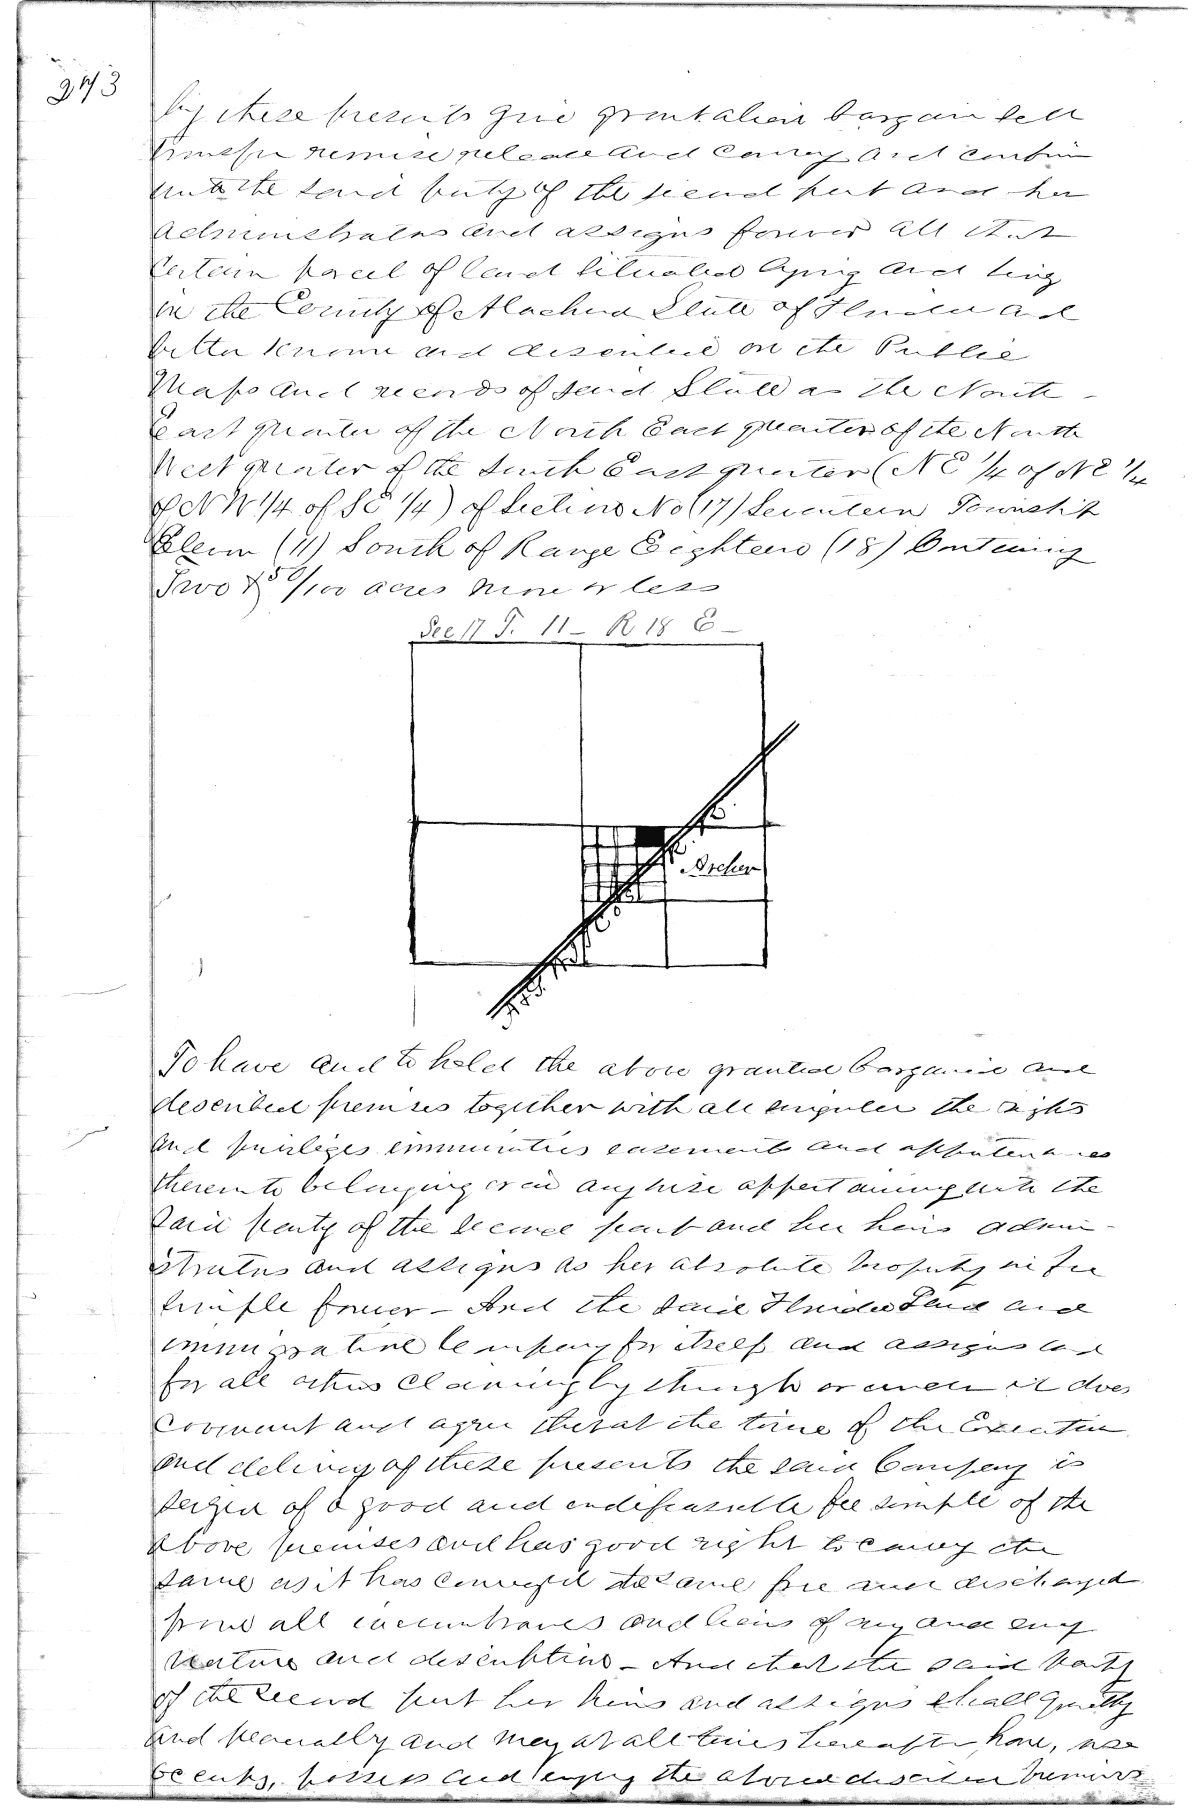 273
by these presents give grant alien bargain sell
transfer remise release and convey and confirm
unto the said party of the second part and her
administrators and assigns forever all that
certain parcel of land situated lying and being
in the County of Alachua State of Florida and
better known and described on the Public
Maps and records of said State as the North
East quarter of the North East quarter of the North
West quarter of the South East quarter (NE 1/4 of NE 1/4
of NW 1/4 of SE 1/4) of Section No (17) Seventeen Township
Eleven (11) South of Range Eighteen (18) Containing
Two & 50/100 acres more or less
Sec 17 T. 11 – R 18 E –
Archer
To have and to hold the above granted bargained and
described premises together with all singular the rights
and privileges immunities easements and appurtenances
thereunto belonging or in anywise appertaining unto the
said party of the second part and her heirs admini-
strators and assigns as her absolute property in fee
simple forever – And the said Florida Land and
immigration Company for itself and assigns and
for all others claiming by through or under it does
covenant and agree that at the time of the Execution
and delivery of these presents the said Company is
seized of a good and indefeasible fee simple of the
above premises and has good right to convey the
same as it has conveyed the same free and discharged
from all incumbrances and liens of any and every
nature and description – And that the said party
of the second part her heirs and assigns shall quietly
and peaceably and may at all times hereafter, have, use
occupy, possess and enjoy the above described premises